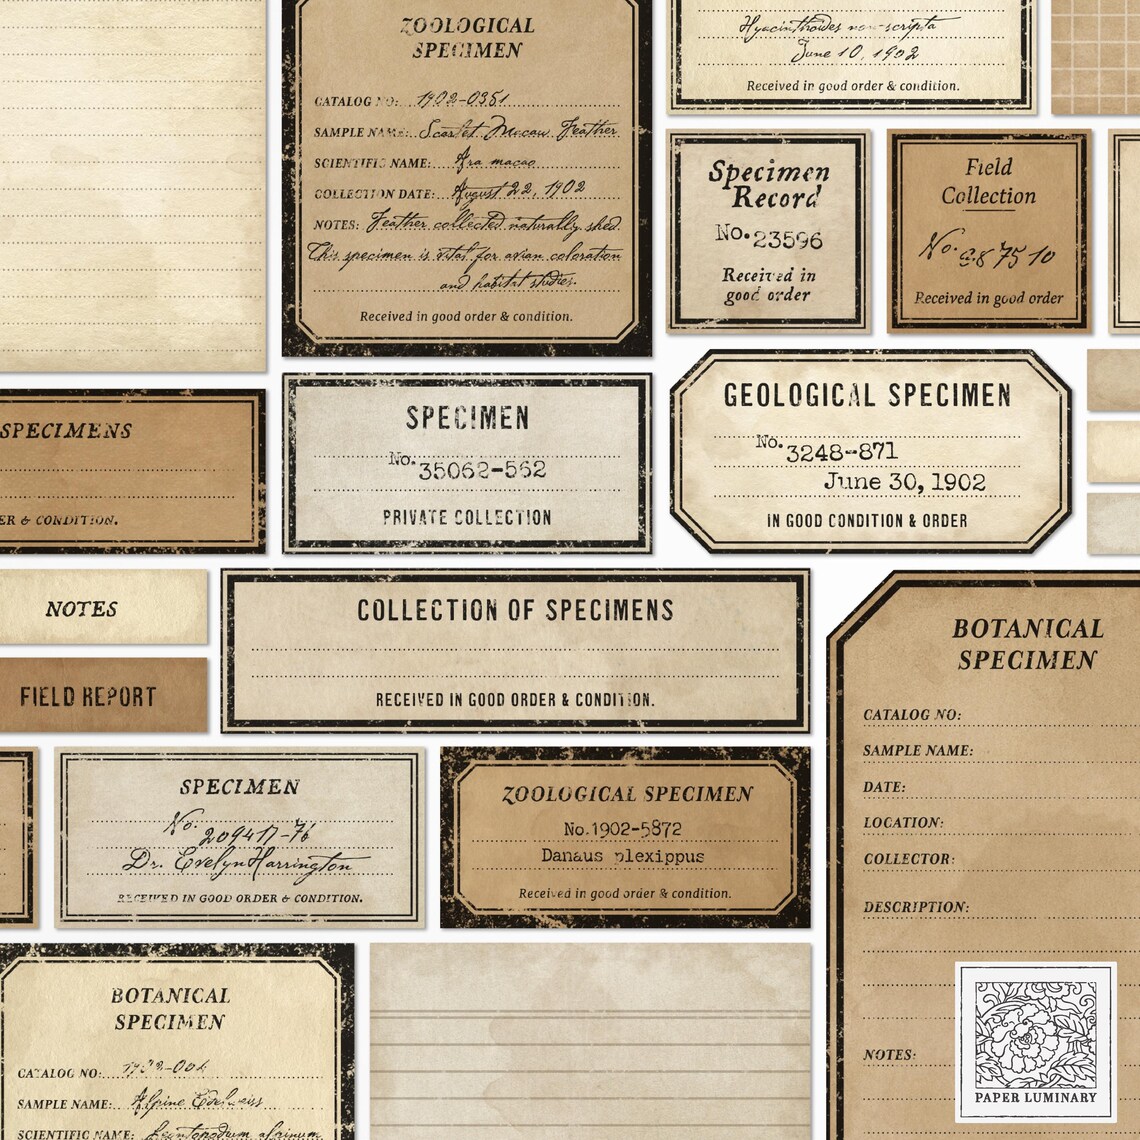 ZOOLOGICAL
SPECIMEN
CATALOG NO: 1902-0351
SAMPLE NAME: Scarlet Macaw Feather
SCIENTIFIC NAME: Ara macao
COLLECTION DATE: August 22, 1902
NOTES: Feather collected naturally shed.
This specimen is vital for avian coloration
and habitat studies.
Received in good order & condition.
Hyacinthoides non-scripta
June 10, 1902
Received in good order & condition.
Specimen
Record
No. 23596
Received in
good order
Field
Collection
No.
Received in good order
SPECIMENS
ER & CONDITION.
SPECIMEN
No. 35062-562
PRIVATE COLLECTION
GEOLOGICAL SPECIMEN
No. 3248-871
June 30, 1902
IN GOOD CONDITION & ORDER
NOTES
FIELD REPORT
COLLECTION OF SPECIMENS
RECEIVED IN GOOD ORDER & CONDITION.
BOTANICAL
SPECIMEN
CATALOG NO:
SAMPLE NAME:
DATE:
LOCATION:
COLLECTOR:
DESCRIPTION:
NOTES:
SPECIMEN
No. 209417-76
Dr. Evelyn Harrington
RECEIVED IN GOOD ORDER & CONDITION.
ZOOLOGICAL SPECIMEN
No. 1902-5872
Danaus plexippus
Received in good order & condition.
BOTANICAL
SPECIMEN
CATALOG NO:
SAMPLE NAME: Alpine Edelweiss
SCIENTIFIC NAME: Leontopodium alpinum
PAPER LUMINARY